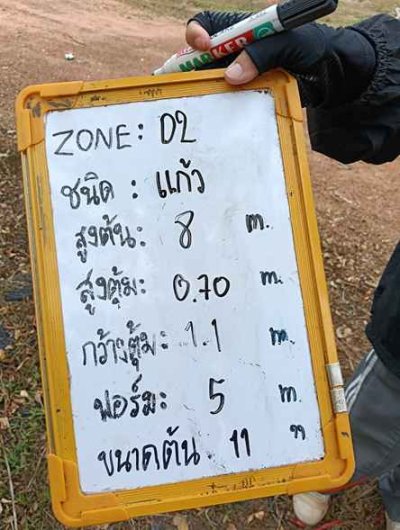 MARKER
ZONE: D2
ชนิด : แก้ว
สูงต้น: 8 m.
สูงตุ้ม: 0.70 m.
กว้างตุ้ม: 1.1 m.
ฟอร์ม: 5 m.
ขนาดต้น 11 "